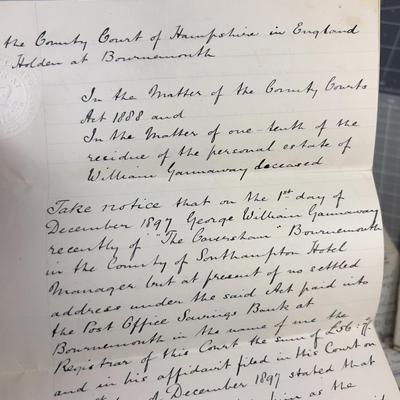 the County Court of Hampshire in England
Holden at Bournemouth
In the Matter of the County Courts
Act 1888 and
In the Matter of one-tenth of the
residue of the personal estate of
William Gannaway deceased
Take notice that on the 1st day of
December 1897 George William Gannaway
recently of "The Caversham" Bournemouth
in the County of Southampton Hotel
Manager but at present of no settled
address under the said Act paid into
the Post Office Savings Bank at
Bournemouth in the name of me the
Registrar of this Court the sum of
and in his affidavit filed in this Court on
of December 1897 stated that
him as the